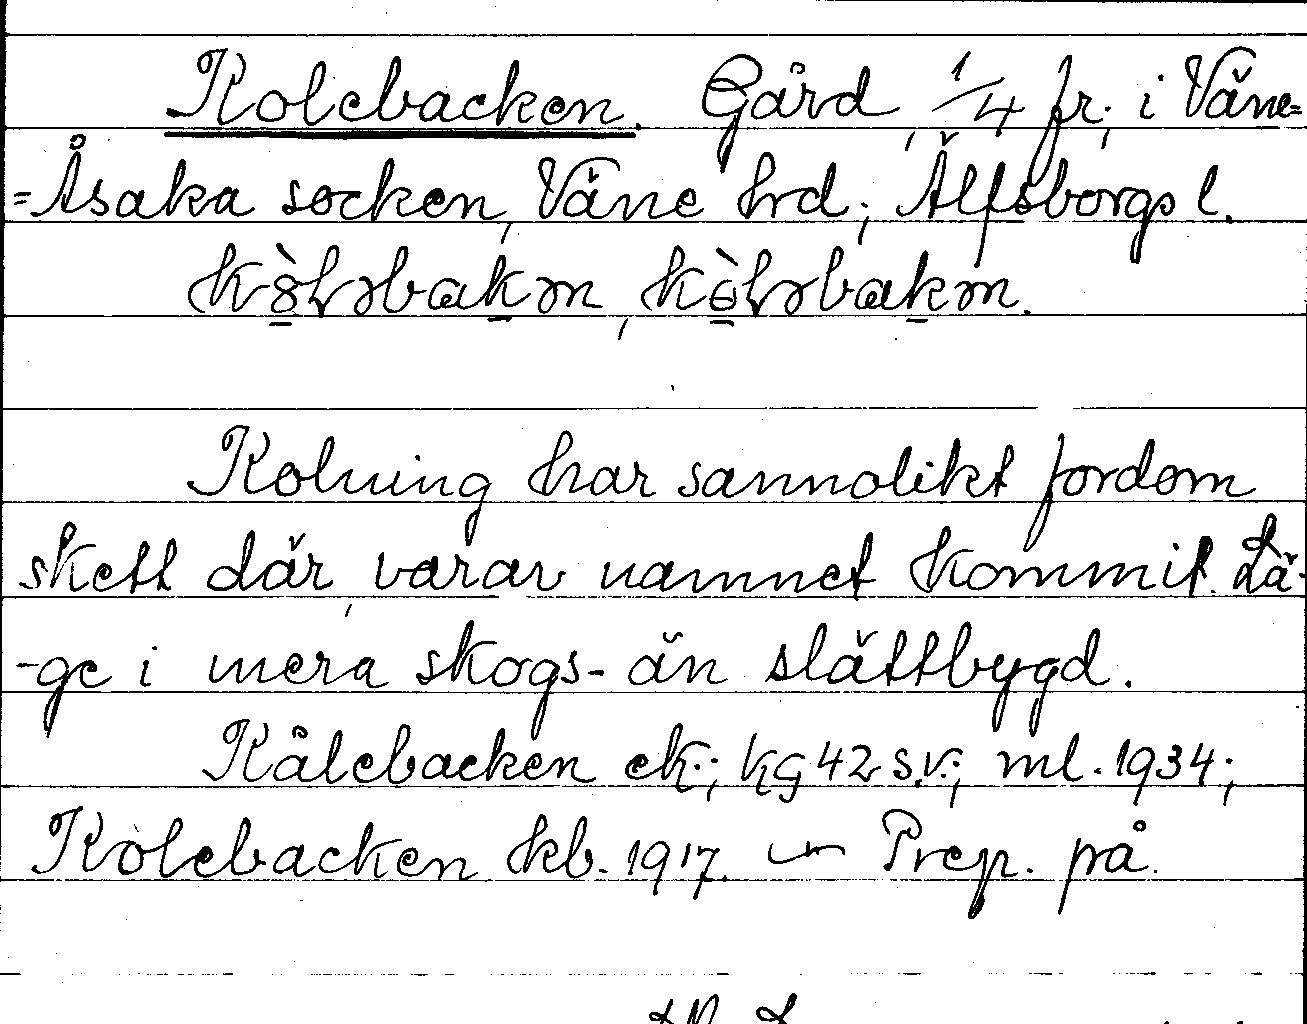 Kolebacken. Gård, 1/4 fr., i Väne=
=Åsaka socken, Väne hrd., Älfsborgs l.
Kolning har sannolikt fordom
skett där, varav namnet kommit. Lä-
-ge i mera skogs- än slättbygd.
Kålebacken ek.; kg 42 s.v.; ml. 1934;
Kolebacken kb. 1917. — Prep. på.